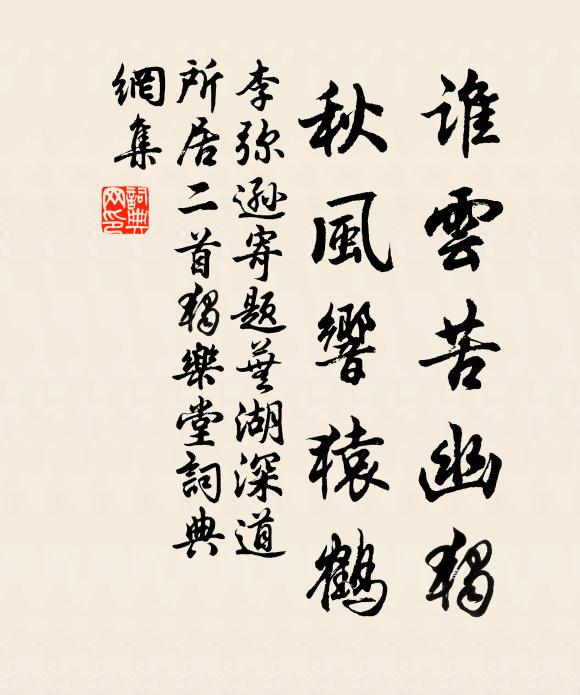 谁雲苦幽獨
秋風響猿鶴
李弥遜寄题蕪湖深道
所居二首獨樂堂詞典
網集
詞典網印